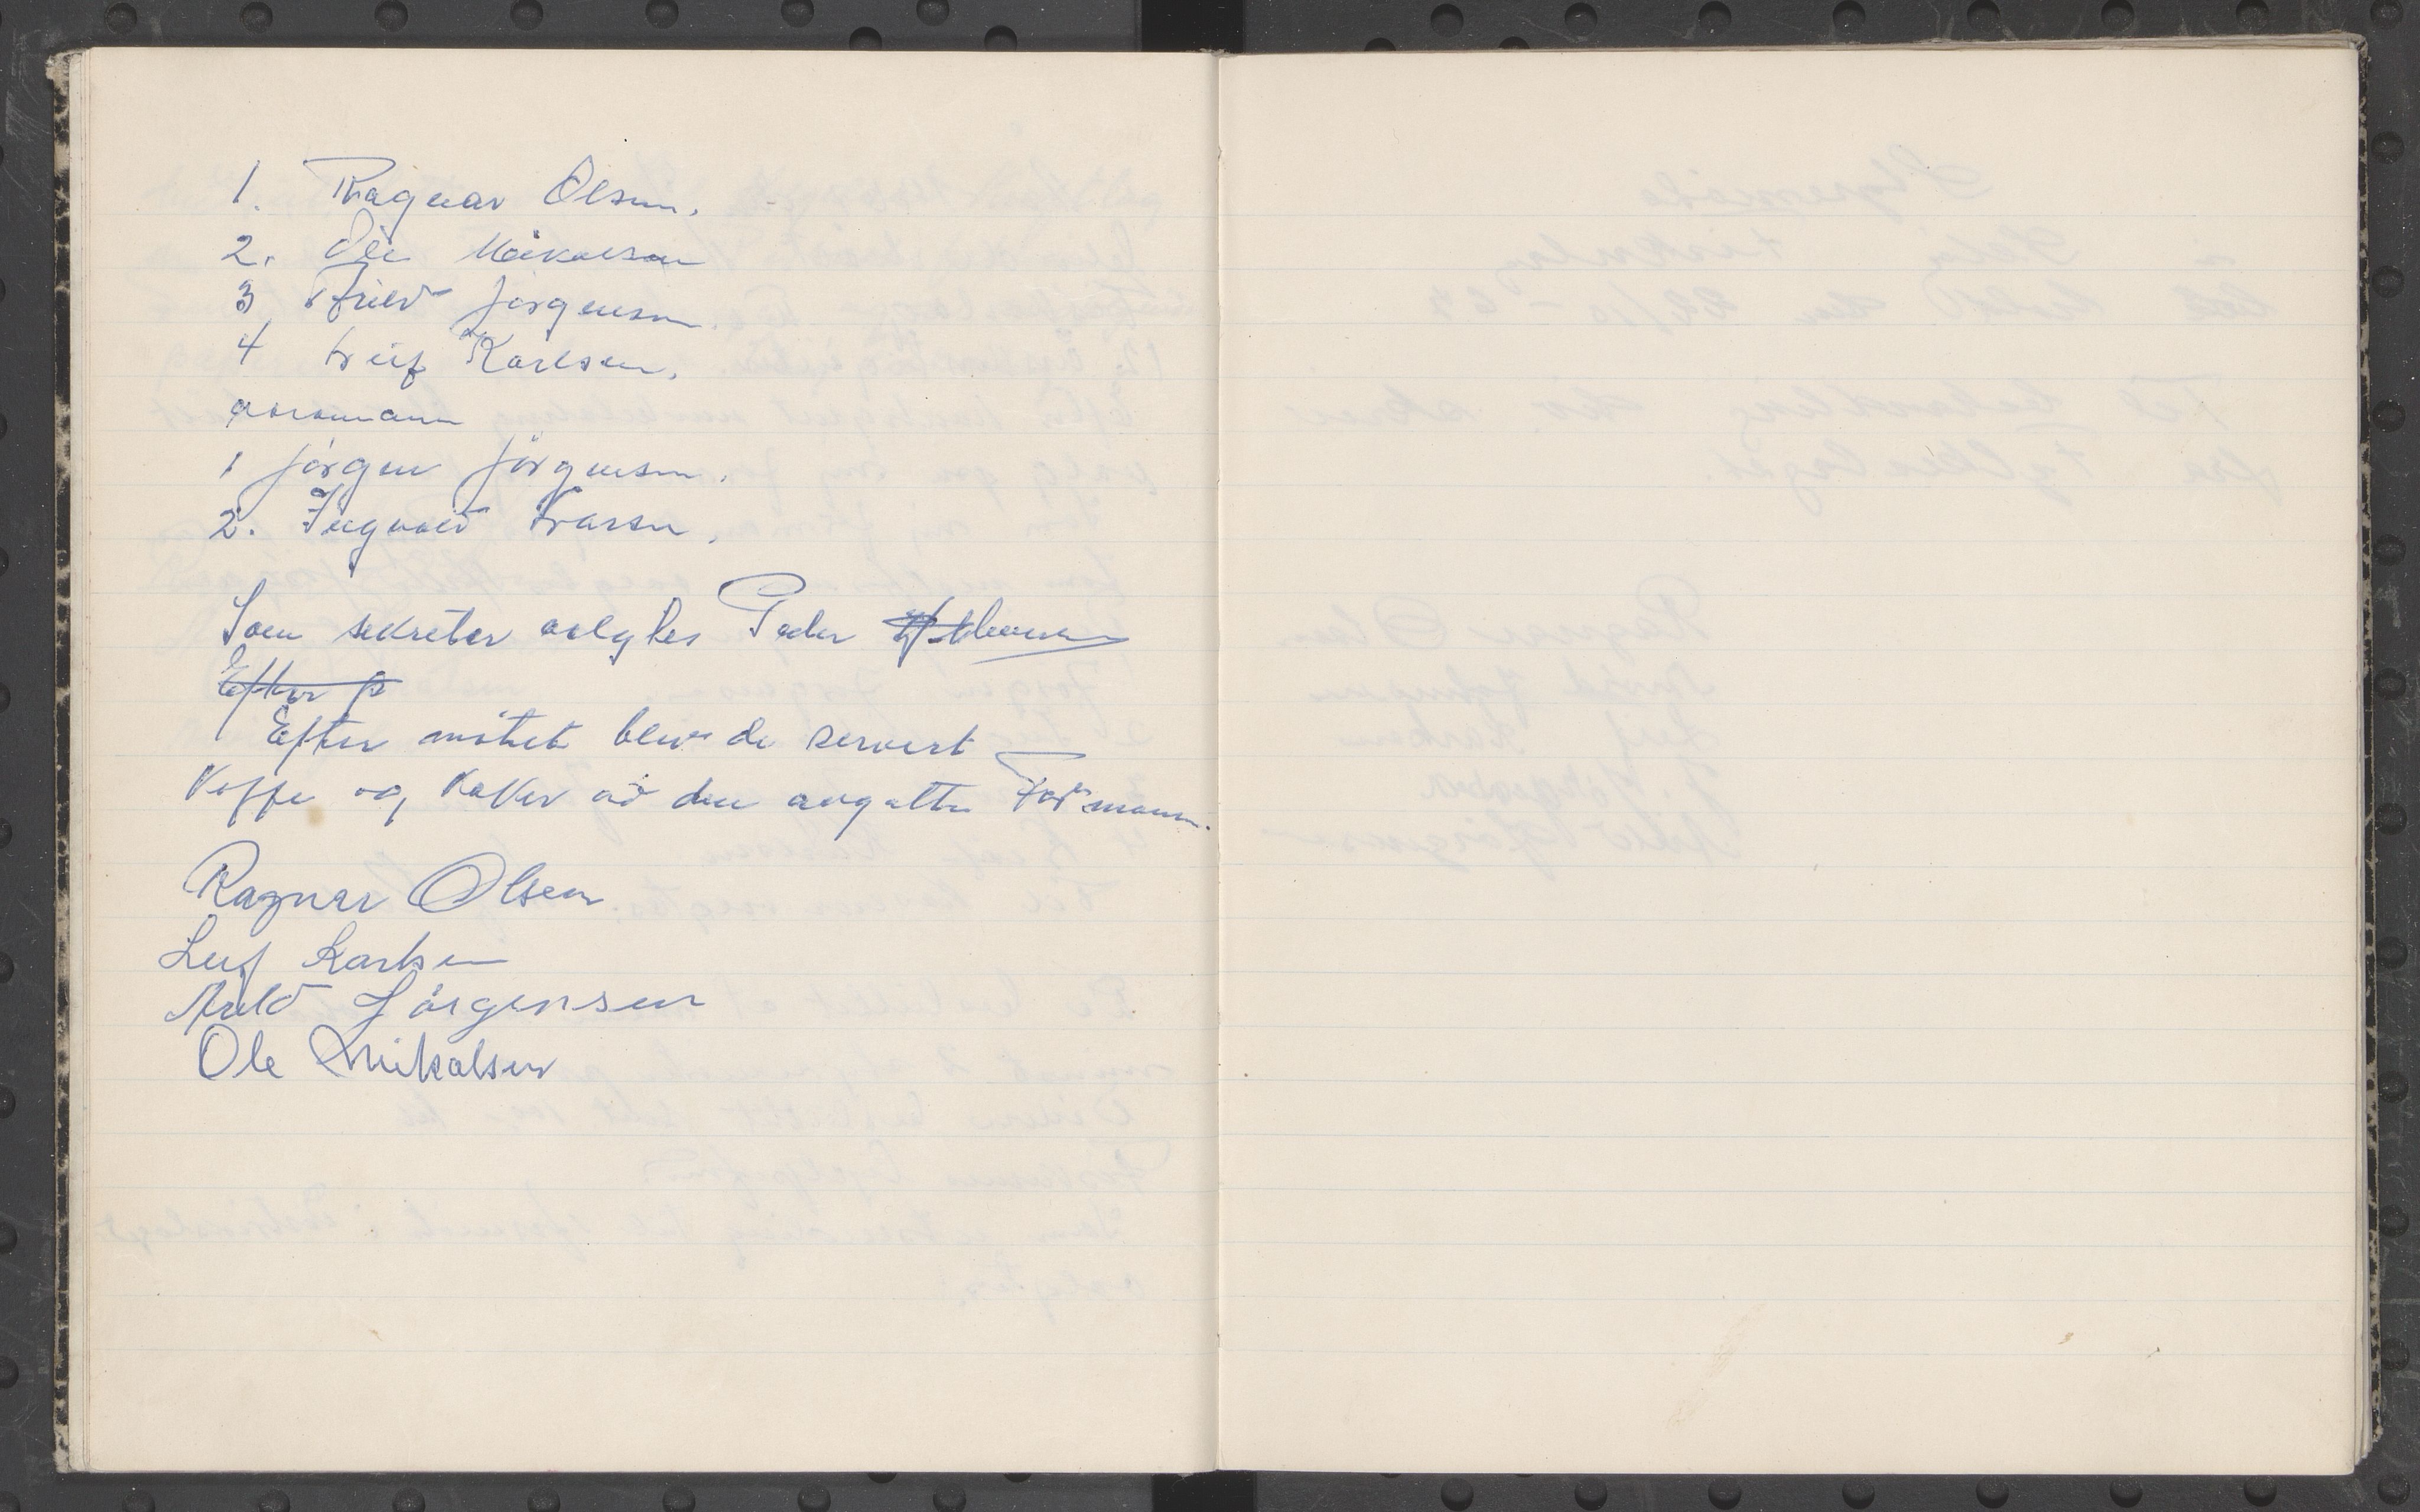 1. Ragnar Olsen.
2. Ole Mikalsen
3 Arild Jørgensen.
4 Leif Karlsen.
varamann
1 Jørgen Jørgensen.
2. Ingvald Larsen.
Som sekretær valgtes Peder
Efter p
Efter møtet blev de servert
Kaffe og Kaker av den avgåtte Formann.
Ragnar Olsen
Leif Karlsen
Arild Jørgensen
Ole Mikalsen